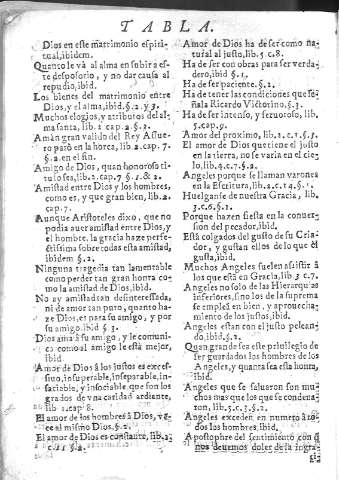 TABLA.
Dios en este matrimonio espiri-
tual, ibidem.
Quanto le và al alma en subir a es-
te desposorio, y no dar causa al
repudio, ibid.
Los bienes del matrimonio entre
Dios, y el alma, ibid. §. 2. y 3.
Muchos elogios, y atributos del al-
ma santa, lib. 1. cap. 2. §. 2.
Amàn gran valido del Rey Assue-
ro parò en la horca, lib. 2. cap. 7.
§. 2. en el fin.
Amigo de Dios, quan honoroso ti-
tulo es, lib. 2. cap. 7 §. 1. & 2.
Amistad entre Dios, y los hombres,
como es, y que gran bien, lib. 2.
cap. 7.
Aunque Aristoteles dixo, que no
podia auer amistad entre Dios, y
el hombre, la gracia haze perfe-
ctissima sobre todas esta amistad,
ibidem §. 2.
Ninguna tragedia tan lamentable
como perder tan gran honra co-
mo la amistad de Dios, ibid.
No ay amistad tan desinteressada,
ni de amor tan puro, quanto ha-
ze Dios, es para su amigo, y por
su amigo, ibid §. 3.
Dios ama à su amigo, y le comuni-
ca como al amigo le està mejor,
ibid.
Amor de Dios à los justos es exces-
siuo, insuperable, inseparable, in-
saciable, y insociable, que son los
grados de vna caridad ardiante,
lib 1. cap. 8.
El amor de los hombres à Dios, ve-
ce al mismo Dios. §. 2.
El amor de Dios es constante, lib. 2.
c. 11 §. 2.
Amor de Dios ha de ser como na-
tural al justo, lib. 5. c. 8.
Ha de ser con obras para ser verda-
dero, ibid §. 1.
Ha de ser paciente. §. 2.
Ha de tener las condiciones que se-
ñala Ricardo Victorino. §. 3.
Ha de ser intenso, y feruoroso, lib.
5. cap. 9.
Amor del proximo, lib. 2. c. 1. §. 3.
El amor de Dios que tiene el justo
en la tierra, no se varia en el cie-
lo, lib. 4. c. 7. §. 2.
Angeles porque se llaman varones
en la Escritura, lib. 2. c. 14. §. 1.
Huelganse de nuestra Gracia, lib.
3. c. 6. §. 1.
Porque hazen fiesta en la conuer-
sion del pecador, ibid.
Està colgados del gusto de su Cria-
dor, y gustan ellos de lo que èl
gusta, ibid.
Muchos Angeles suelen assistir à
los que està en Gracia, lib. 3. c. 7.
Angeles no solo de las Hierarquias
inferiores, sino los de la suprema
se empleã en bien, y aprouecha-
miento de los justos, ibid.
Angeles estan con el justo pelean-
do, ibid. §. 2.
Quan grande sea este priuilegio de
ser guardados los hombres de los
Angeles, y quanta sea esta honra,
ibid.
Angeles que se saluaron son mu-
chos mas que los que se condena-
ron, lib. 5. c. 3. §. 2.
Angeles exceden en numero à to-
dos los hombres, ibid.
A postopire del sentimiento con q̃
nos deuemos doler de la ingra-